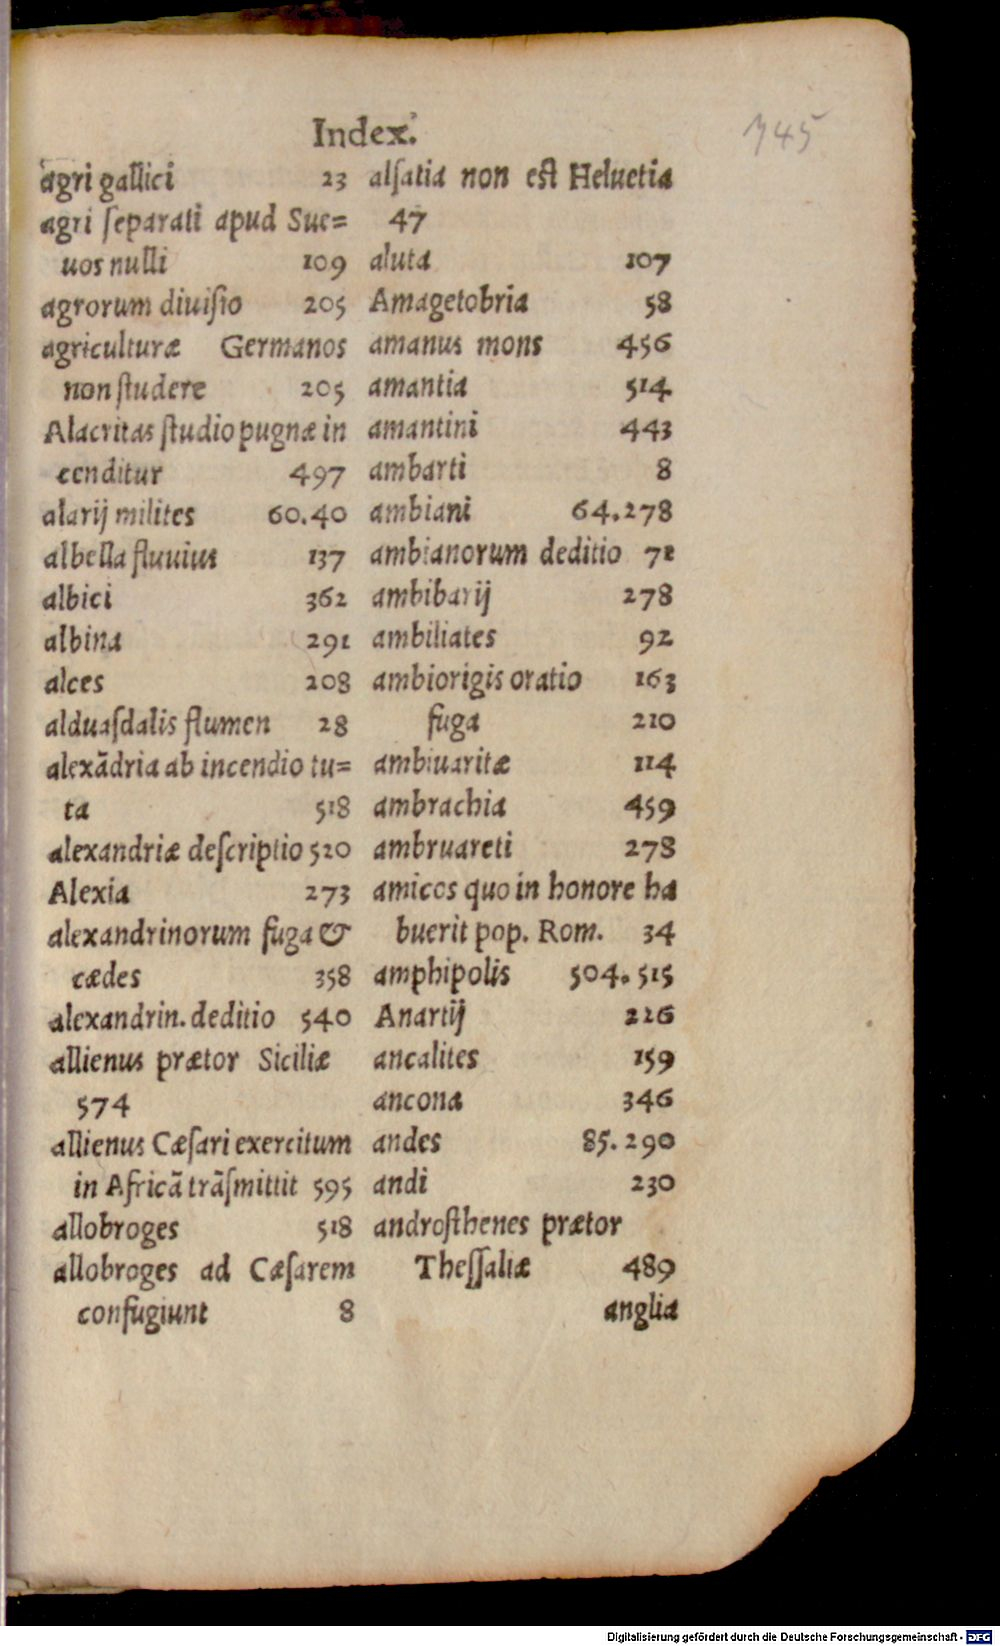 Index.
745
agri gallici 23
agri ſeparati apud Sue=
uos nulli 109
agrorum diuiſio 205
agriculturæ Germanos
non ſtudere 205
Alacritas ſtudio pugnæ in
cenditur 497
alarij milites 60.40
albella fluuius 137
albici 362
albina 291
alces 208
alduaſdalis flumen 28
alexādria ab incendio tu=
ta 518
alexandriæ deſcriptio 520
Alexia 273
alexandrinorum fuga &
cædes 358
alexandrin. deditio 540
allienus prætor Siciliæ
574
allienus Cæſari exercitum
in Africā trāſmittit 595
allobroges 518
allobroges ad Cæſarem
confugiunt 8
alſatia non eſt Heluetia
47
aluta 107
Amagetobria 58
amanus mons 456
amantia 514
amantini 443
ambarti 8
ambiani 64.278
ambianorum deditio 71
ambibarij 278
ambiliates 92
ambiorigis oratio 163
fuga 210
ambiuaritæ 114
ambrachia 459
ambruareti 278
amicos quo in honore ha
buerit pop. Rom. 34
amphipolis 504.515
Anartij 226
ancalites 159
ancona 346
andes 85.290
andi 230
androſthenes prætor
Theſſaliæ 489
anglia
Digitalisierung gefördert durch die Deutsche Forschungsgemeinschaft - DFG